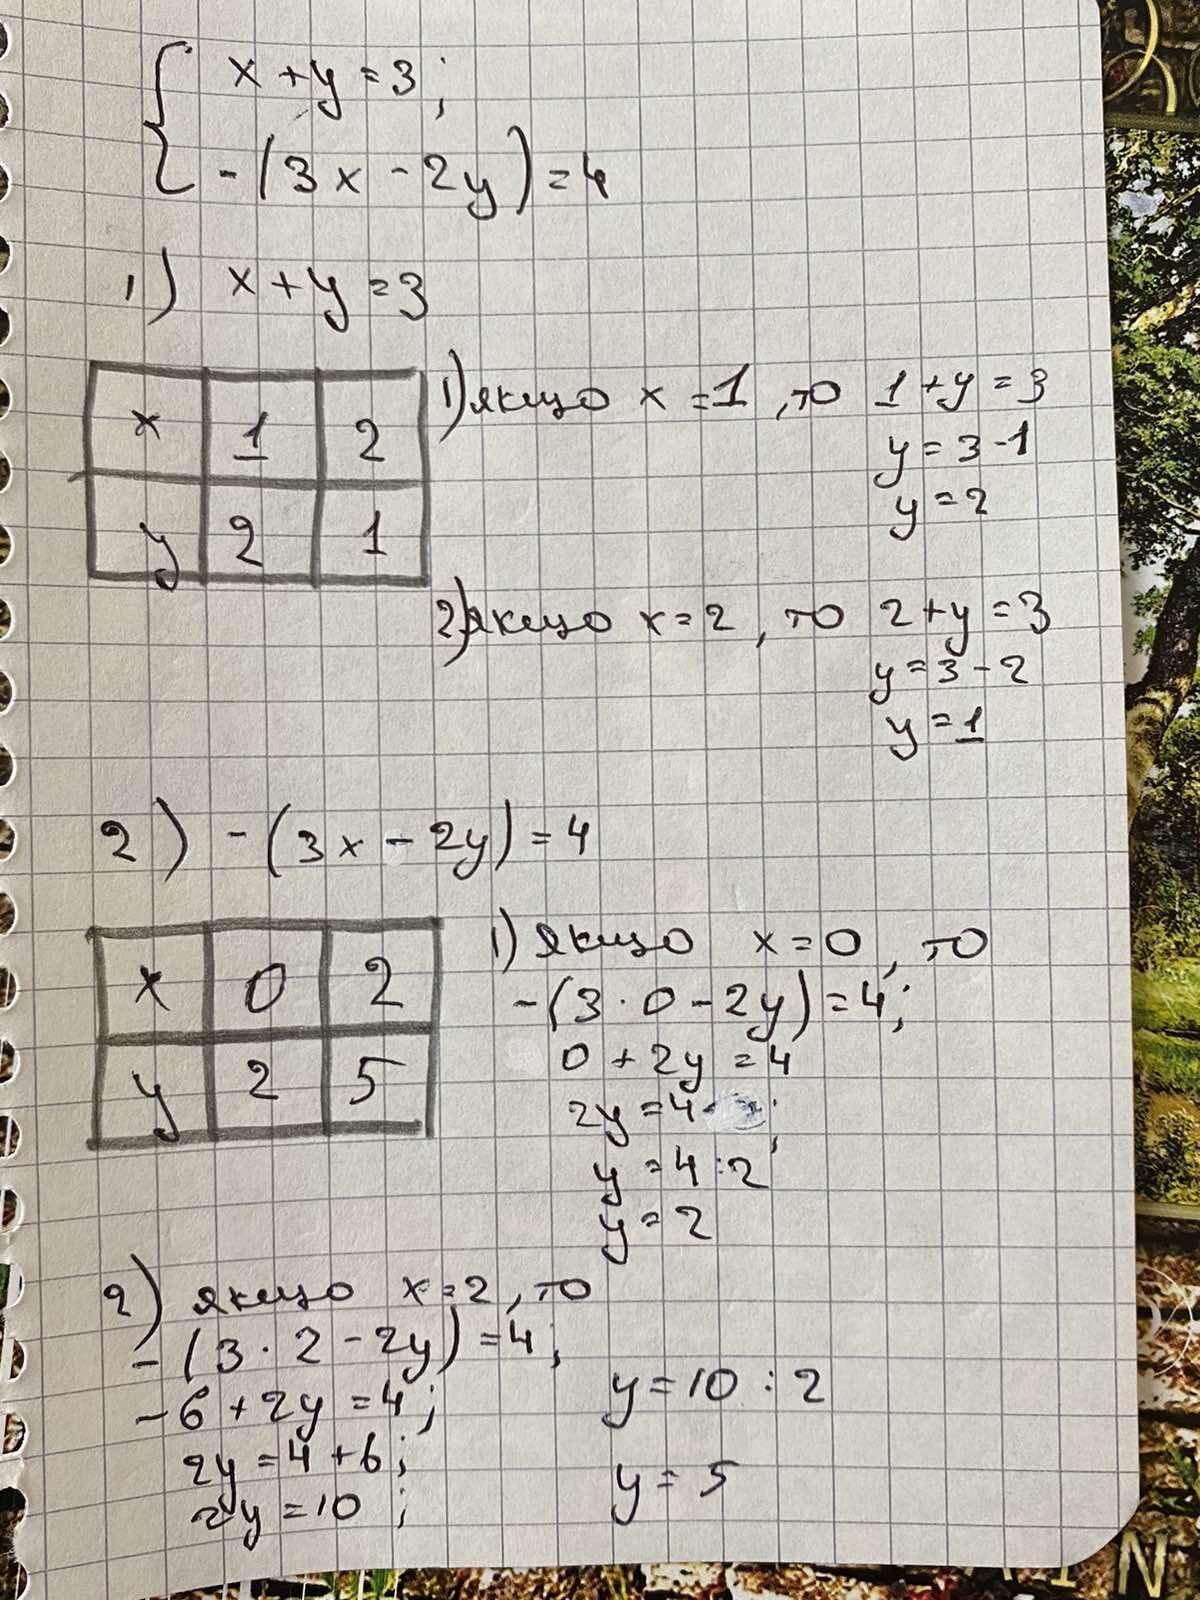 x + y = 3;
-(3x - 2y) = 4
1) x + y = 3
x 1 2
y 2 1
1) якщо x = 1, то 1 + y = 3
y = 3 - 1
y = 2
2) якщо x = 2, то 2 + y = 3
y = 3 - 2
y = 1
2) -(3x - 2y) = 4
x 0 2
y 2 5
1) якщо x = 0, то
-(3 · 0 - 2y) = 4;
0 + 2y = 4
2y = 4 ;
y = 4 : 2
y = 2
2) якщо x = 2, то
-(3 · 2 - 2y) = 4;
-6 + 2y = 4;
2y = 4 + 6;
2y = 10;
y = 10 : 2
y = 5
N